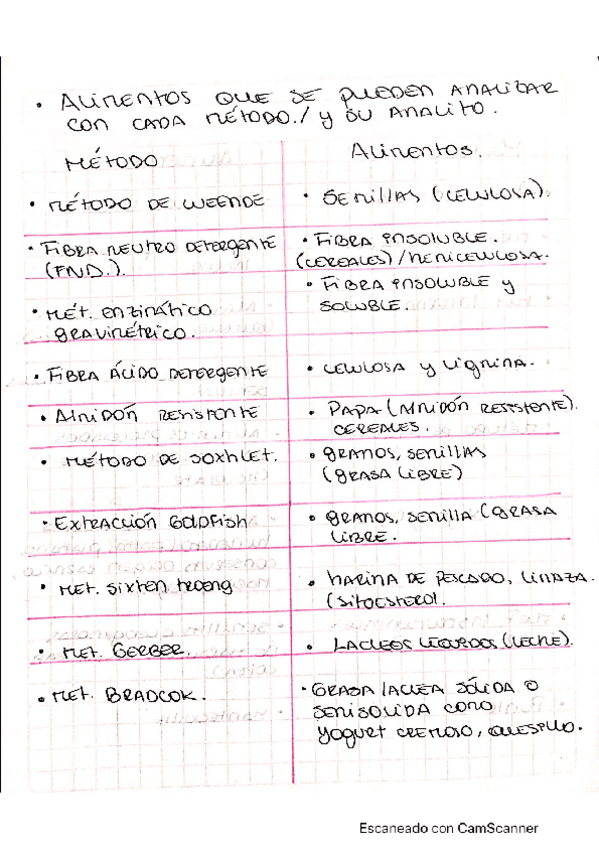 • ALIMENTOS QUE SE PUEDEN ANALIZAR
CON CADA MÉTODO./ y SU ANALITO.
MÉTODO
ALIMENTOS.
• MÉTODO DE WEENDE
• SEMILLAS (CELULOSA).
• FIBRA NEUTRO DETERGENTE
(FND.).
• FIBRA INSOLUBLE.
(CEREALES)/HEMICELULOSA.
• MÉT. ENZIMÁTICO
GRAVIMÉTRICO.
• FIBRA INSOLUBLE y
SOLUBLE.
• FIBRA ÁCIDO DETERGENTE
• CELULOSA y LIGNINA.
• ALMIDÓN RESISTENTE
• PAPA (ALMIDÓN RESISTENTE).
CEREALES.
• MÉTODO DE SOXHLET.
• GRANOS, SEMILLAS
(GRASA LIBRE)
• EXTRACCIÓN GOLDFISH
• GRANOS, SEMILLA (GRASA
LIBRE.
• MET. SIXTEN TROENG
• HARINA DE PESCADO, LINAZA.
(SITOESTEROL.
• MET. GERBER.
• LACTEOS LIQUIDOS (LECHE).
• MET. BRADCOK.
• GRASA LACTEA SÓLIDA O
SEMISOLIDA COMO
YOGUET CREMOSO, QUESILLO.
Escaneado con CamScanner